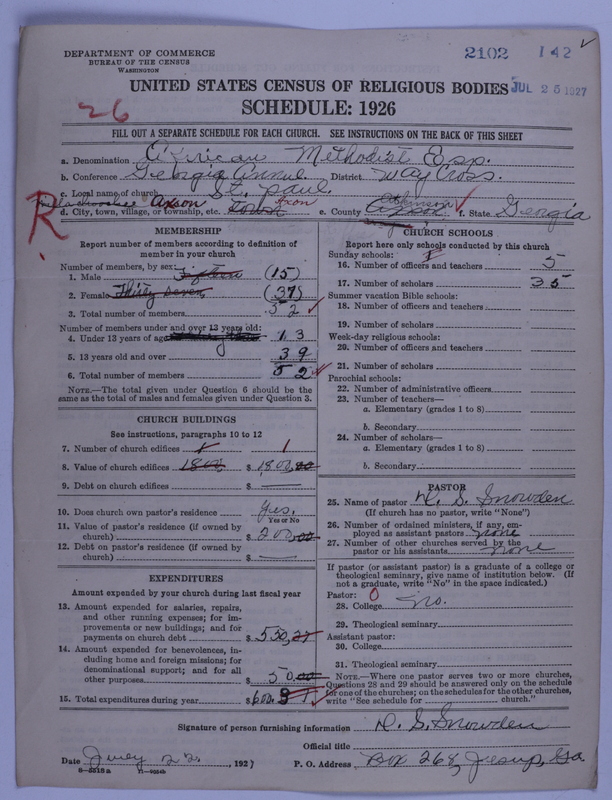 DEPARTMENT OF COMMERCE
BUREAU OF THE CENSUS
WASHINGTON
2102 142
JUL 26 1927
UNITED STATES CENSUS OF RELIGIOUS BODIES
SCHEDULE: 1926
26
FILL OUT A SEPARATE SCHEDULE FOR EACH CHURCH. SEE INSTRUCTIONS ON THE BACK OF THIS SHEET
a. Denomination African Methodist Esp.
b. Conference Georgia Annul District Way Cross.
c. Local name of church St. Paul.
R
d. City, town, village, or township, etc. Axson Town Axon e. County Atkinson f. State Georgia
MEMBERSHIP
Report number of members according to definition of
member in your church
Number of members, by sex:
1. Male Fifteen (15)
2. Female Thirty seven (37)
3. Total number of members 52
Number of members under and over 13 years old:
4. Under 13 years of age 13
5. 13 years old and over 39
6. Total number of members 52
NOTE.—The total given under Question 6 should be the
same as the total of males and females given under Question 3.
CHURCH BUILDINGS
See instructions, paragraphs 10 to 12
7. Number of church edifices 1 1
8. Value of church edifices 1800 $ 1800.00
9. Debt on church edifices $ —
10. Does church own pastor's residence Yes.
Yes or No
11. Value of pastor's residence (if owned by
church) $ 200.00
12. Debt on pastor's residence (if owned by
church) $ —
EXPENDITURES
Amount expended by your church during last fiscal year
13. Amount expended for salaries, repairs,
and other running expenses; for im-
provements or new buildings; and for
payments on church debt $ 550.27
14. Amount expended for benevolences, in-
cluding home and foreign missions; for
denominational support; and for all
other purposes $ 50.00
15. Total expenditures during year $ 600.
CHURCH SCHOOLS
Report here only schools conducted by this church
Sunday schools: 1
16. Number of officers and teachers 5
17. Number of scholars 35
Summer vacation Bible schools:
18. Number of officers and teachers
19. Number of scholars
Week-day religious schools:
20. Number of officers and teachers
21. Number of scholars
Parochial schools:
22. Number of administrative officers
23. Number of teachers—
a. Elementary (grades 1 to 8)
b. Secondary
24. Number of scholars—
a. Elementary (grades 1 to 8)
b. Secondary
PASTOR
25. Name of pastor D. S. Snowden
(If church has no pastor, write "None")
26. Number of ordained ministers, if any, em-
ployed as assistant pastors none
27. Number of other churches served by the
pastor or his assistants none
If pastor (or assistant pastor) is a graduate of a college or
theological seminary, give name of institution below. (If
not a graduate, write "No" in the space indicated.)
Pastor: 0
28. College no.
29. Theological seminary
Assistant pastor:
30. College
31. Theological seminary
NOTE.—Where one pastor serves two or more churches,
Questions 28 and 29 should be answered only on the schedule
for one of the churches; on the schedules for the other churches,
write "See schedule for church."
Signature of person furnishing information D. S. Snowden
Official title
Date July 22, 1927 P. O. Address Box 268, Jesup, Ga.
8-5518a